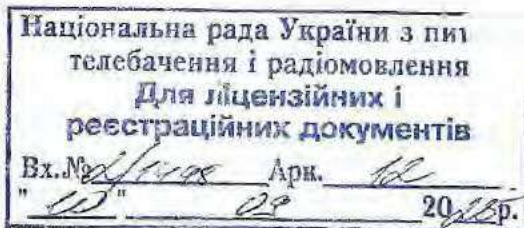 Національна рада України з пит
телебачення і радіомовлення
Для ліцензійних і
реєстраційних документів
Вх.№ Арк. 12
" 10 " 09 2025р.